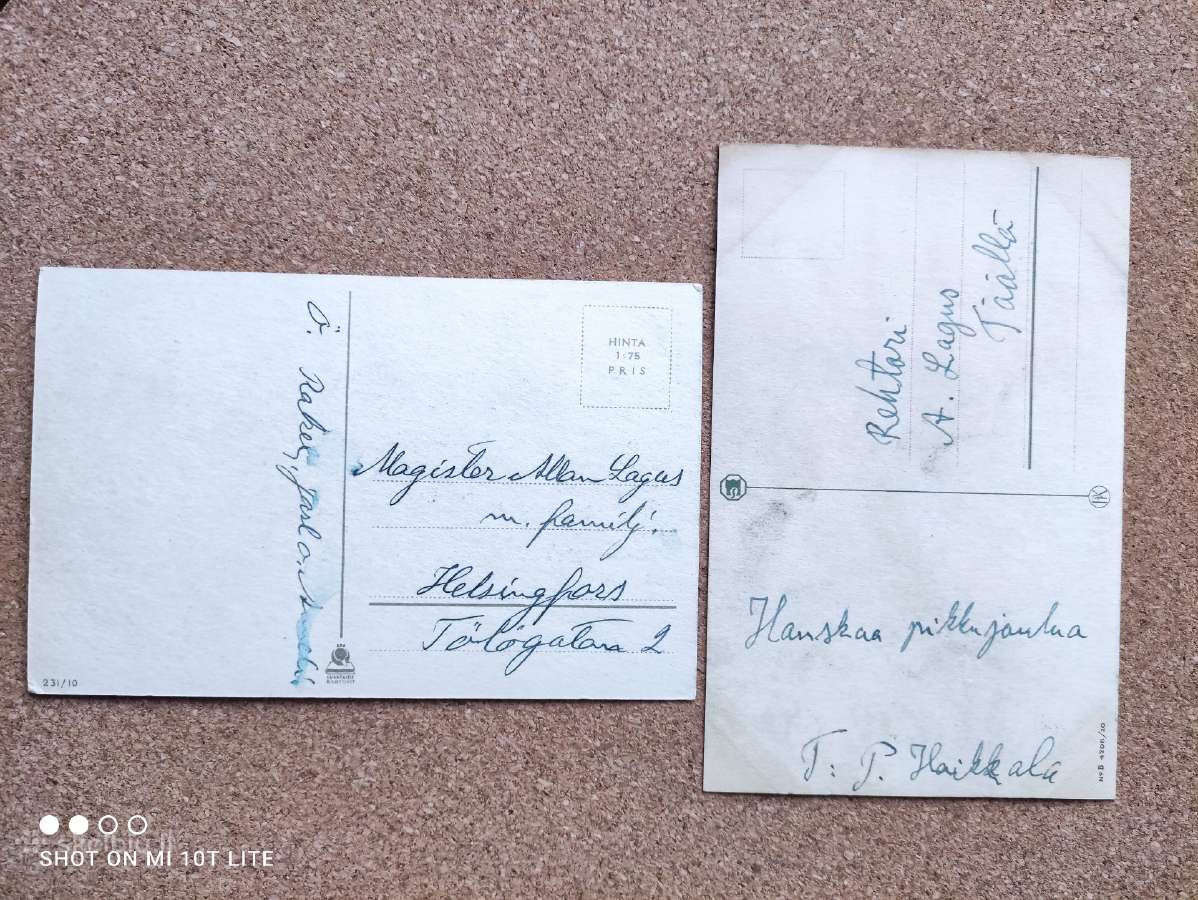 HINTA
1:75
PRIS
Magister Allan Lagus
m. familj.
Helsingfors
Tölögatan 2
Ö. Rakel,
231/10
Rehtori
A. Lagus
Täällä
Hauskaa pikkujoulua
T: P. Haikkala
SHOT ON MI 10T LITE